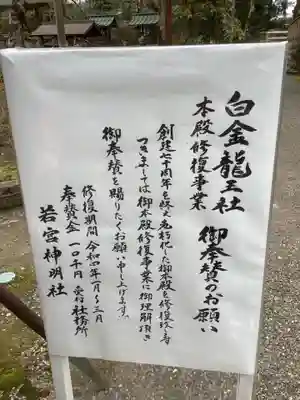 白金龍王社
本殿修復事業
御奉賛のお願い
創建七十周年を終え老朽化した御本殿を修復致します
つきましては御本殿修復事業に御理解頂き
御奉賛を賜りたくお願い申し上げます
修復期間 令和四年一月〜三月
奉賛金 一口千円 受付社務所
若宮神明社